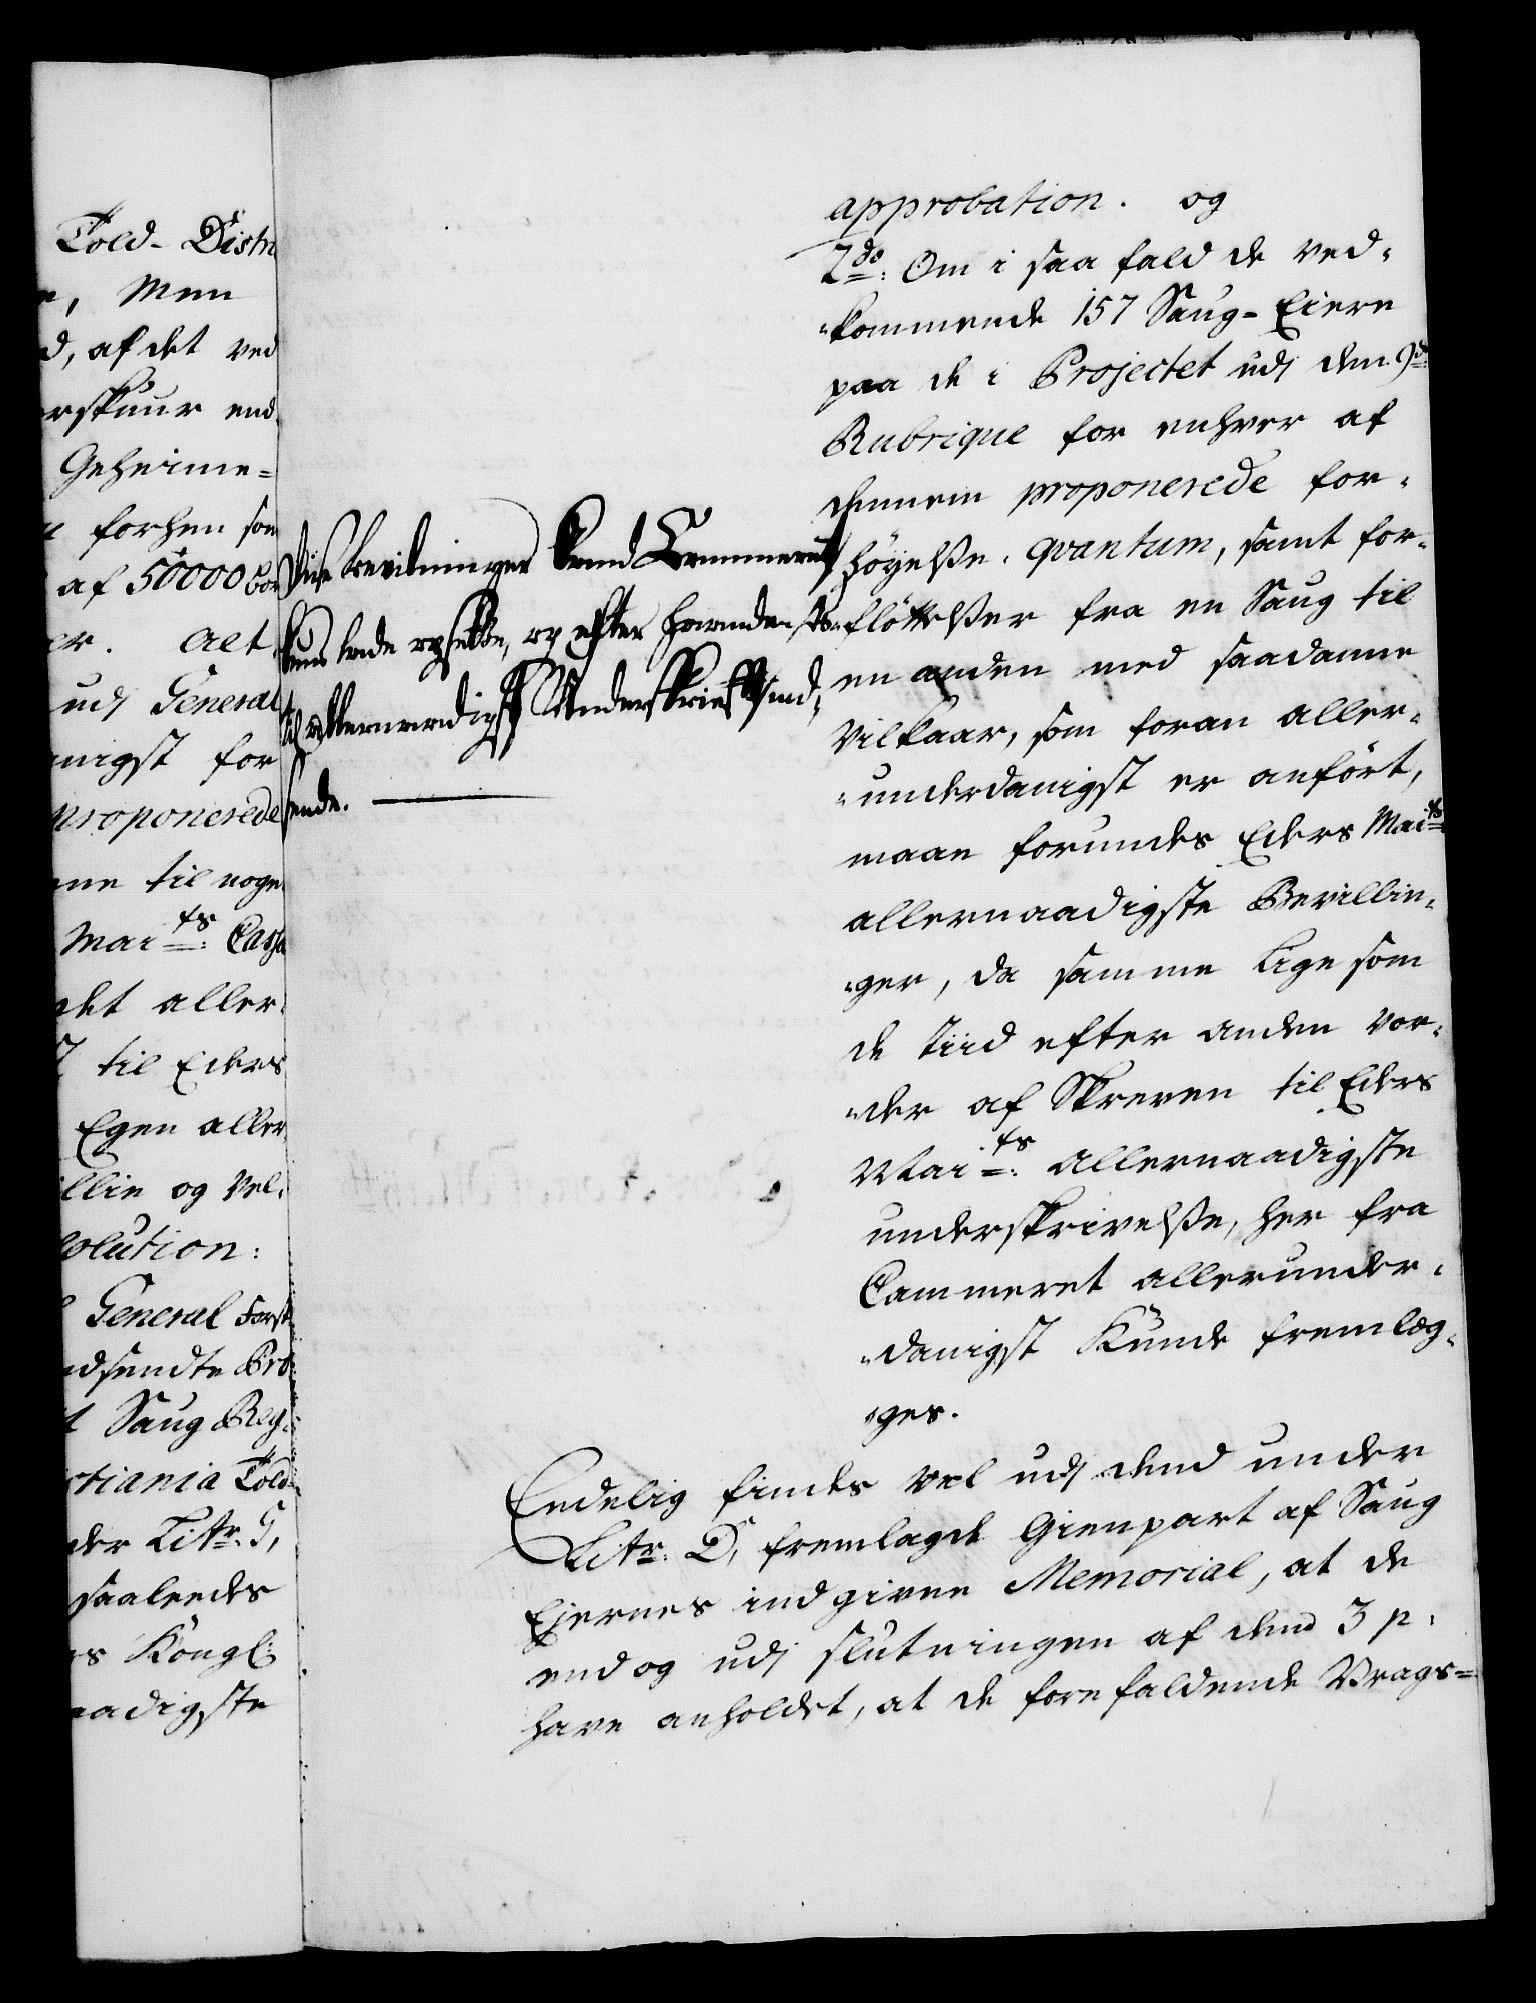 Told-Distri
e, Men
d, af det ved
rskuur end
Geheime=
forhen som
af 50000 bor
er. Alt
udj General
nigst for
proponerede
ne til noge
Mai^ts: Cassa
det aller
til Eders
Egen aller
llie og Vel
solution:
General Forst
ndsendte Pro
t Saug Reg
stiania Told
der Litr: G,
saaledes
s Kongl:
aadigste
Disse bevilninger kand Cammeret
lade opsette, og efter haanden os
til allernaadigst Underskrifft ind,
sende.
approbation. og
2^do: Om i saa fald de ved-
-kommende 157 Saug-Eiere
paa de i Projectet udj den 9^de
Rubrique for enhver af
dennem proponerede for-
höyelße qvantum, samt for-
-flöttelßer fra en Saug til
en anden med saadanne
Vilkaar, som foran aller-
-underdanigst er anfört,
maae forundes Eders Mai^ts:
allernaadigste Bevillin-
-ger, da samme lige som
de Tiid efter anden vor-
-der afskreven til Eders
Mai^ts: allernaadigste
underskrivelße, her fra
Cammeret allerunder-
-danigst kunde fremlæg-
-ges.
Endelig findes vel udj dend under
Litr: D, fremlagde Gienpart af Saug
Ejernes indgivne Memorial, at de
endog udj slutningen af dend 3 p:
have anholdet, at de forefaldende Vrags=